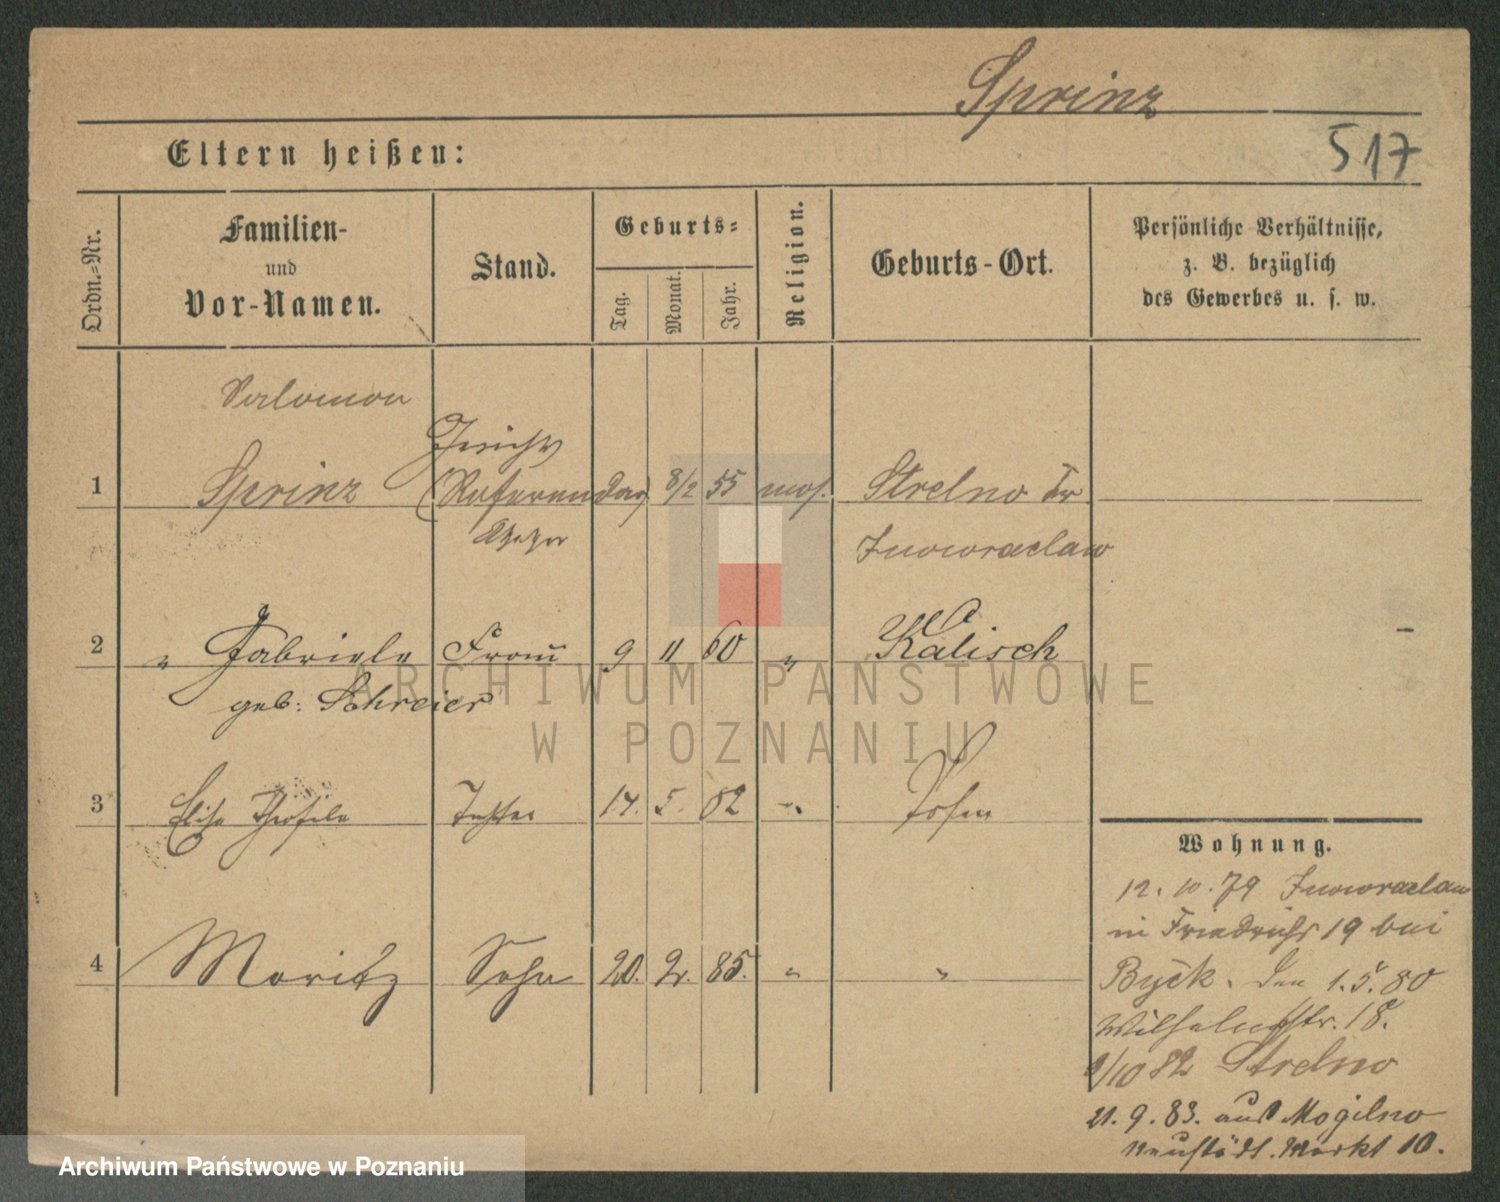 Sprinz
517
Eltern heißen:
Ordn.-Nr.
Familien-
und
Vor-Namen.
Stand.
Geburts-
Tag.
Monat.
Jahr.
Religion.
Geburts-Ort.
Persönliche Verhältnisse,
z. B. bezüglich
des Gewerbes u. s. w.
Salomon
1 Sprinz (Referendar) 8/2 55 mos. Strelno Kr
Inowraclaw
2 " Gabriele Frau 9 11 60 " Kalisch
geb: Schreier
3 Elise Tochter 17. 5. 82 " Posen
4 Moritz Sohn 20. 2. 85. " "
Wohnung.
12. 10. 79 Inowraclaw
in Friedrichs 19 bei
Byck. Den 1.5.80
Wilhelmstr. 18.
2/10 82 Strelno
21. 9. 83. aus Mogilno
Neustädt. Markt 10.
ARCHIWUM PAŃSTWOWE
W POZNANIU
Archiwum Państwowe w Poznaniu